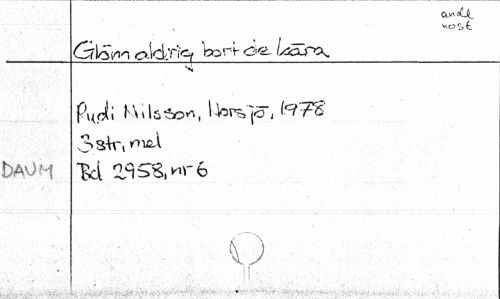 andl
nost
Glöm aldrig bort de kära
Rudi Nilsson, Norsjö, 1978
3 str, mel
DAUM Bd 2958, nr 6